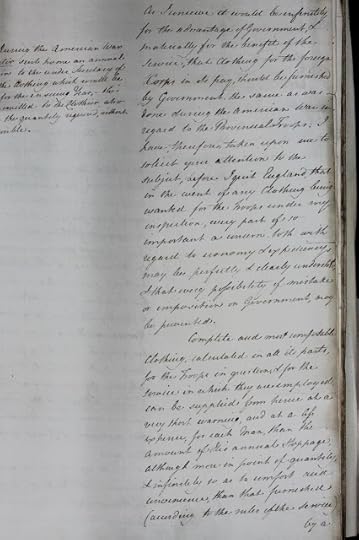 During the American War
sent home an annual
to the under Secretary of
the Clothing which would be
for the ensuing Year, this
to the Clothier also
the quantity required, without

As I conceive it would be infinitely
for the advantage of Government, &
materially for the benefit of the
Service, that Clothing for the foreign
Corps in its pay, should be furnished
by Government, the same as was
done during the American War in
regard to the Provincial Troops; I
have therefore taken upon me to
solicit your attention to the
subject, before I quit England, that
in the event of any Clothing being
wanted for the Troops under my
inspection, every part of so
important a concern both with
regard to economy & expediency,
may be perfectly & clearly understood,
& that every possibility of mistake
or imposition on Government may
be prevented.
Complete and most comfortable
Clothing, calculated in all its parts,
for the Troops in question, & for the
Service in which they are employed
can be supplied from hence at a
very short warning and at a less
expence, for each Man, than the
amount of his annual Stoppage;
although more in point of quantity,
& infinitely so as to comfort and
convenience, than that furnished
(according to the rules of the Service)
by a